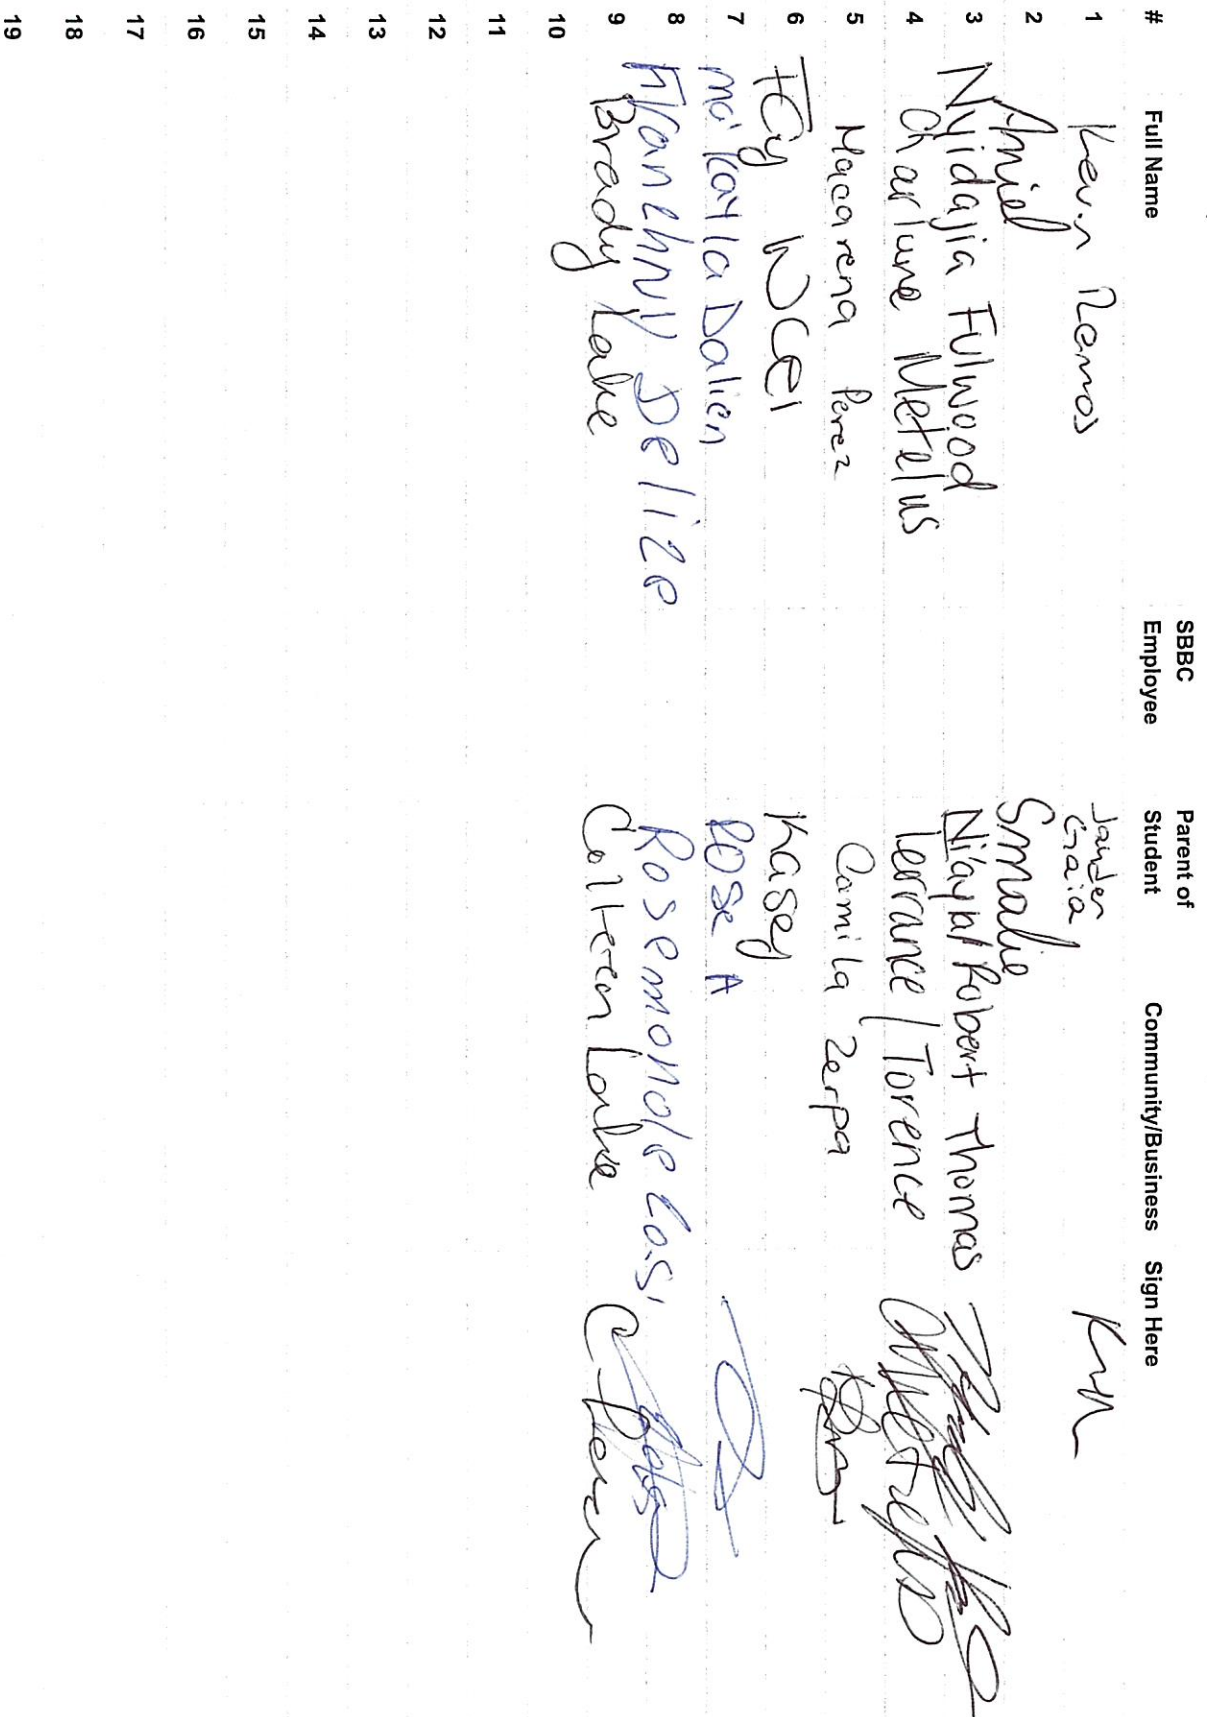 # Full Name SBBC Employee Parent of Student Community/Business Sign Here
1 Kevin Ramos Jander Gaia
2 Aniel Smalie
3 Nyjdajia Fulwood Ni'ayla/Robert Thomas
4 Charlune Metelus Terrance/Torence
5 Macarena Perez Camila Zerpa
6 Kasey
7 ma'kayla Dalien Rose A
8 Delize Rosemonde
9 Brady Lake Colleen Lake
10
11
12
13
14
15
16
17
18
19